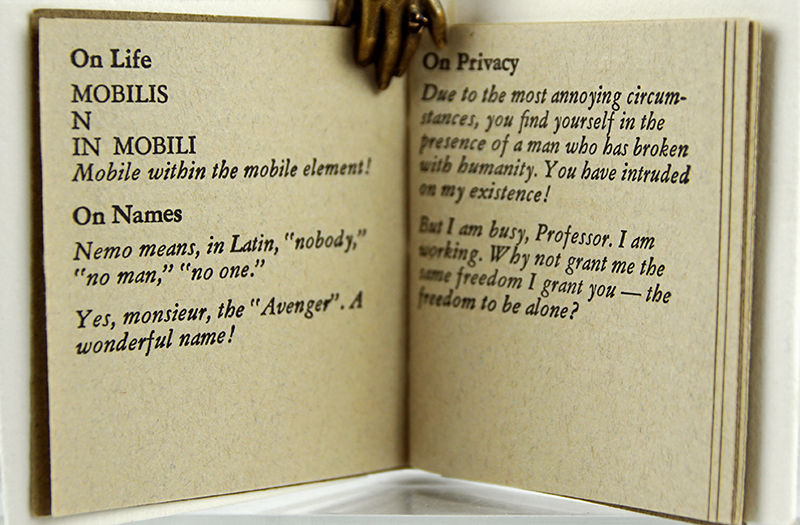 On Life
MOBILIS
N
IN MOBILI
Mobile within the mobile element!
On Names
Nemo means, in Latin, "nobody,"
"no man," "no one."
Yes, monsieur, the "Avenger". A
wonderful name!
On Privacy
Due to the most annoying circum-
stances, you find yourself in the
presence of a man who has broken
with humanity. You have intruded
on my existence!
But I am busy, Professor. I am
working. Why not grant me the
same freedom I grant you — the
freedom to be alone?